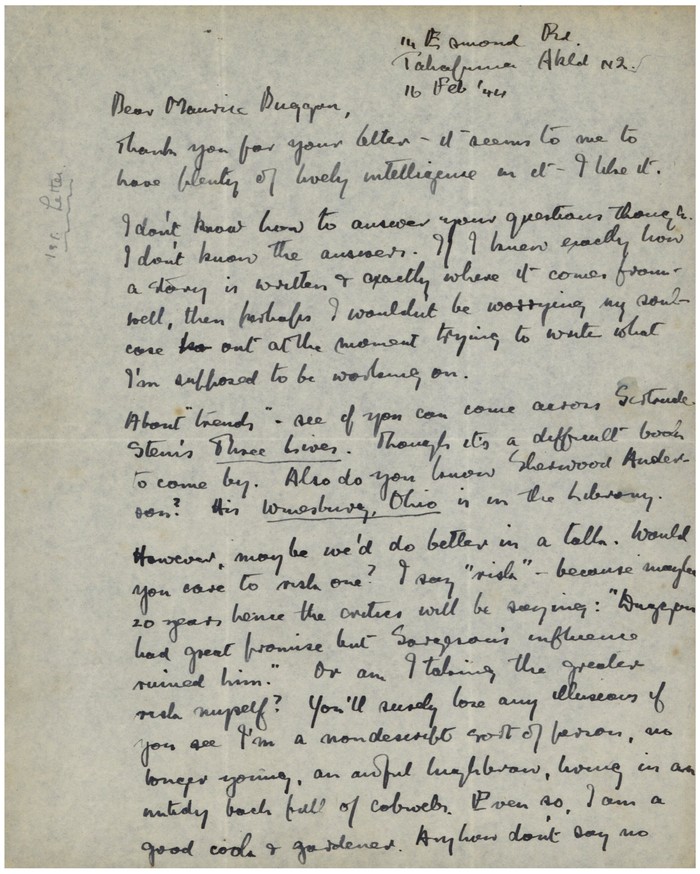 14 Esmond Rd.
Takapuna Akld N2.
16 Feb '44
Dear Maurice Duggan,
1st Letter.
Thank you for your letter - it seems to me to
have plenty of lively intelligence in it - I like it.
I don't know how to answer your questions though.
I don't know the answers. If I knew exactly how
a story is written & exactly where it comes from -
well, then perhaps I wouldn't be worrying my soul-
case out at the moment trying to write what
I'm supposed to be working on.
About "trends" - see if you can come across Gertrude
Stein's Three Lives. Though it's a difficult book
to come by. Also do you know Sherwood Ander-
son? His Winesburg, Ohio is in the Library.
However, maybe we'd do better in a talk. Would
you care to risk one? I say "risk" - because maybe
20 years hence the critics will be saying: "Duggan
had great promise but Sargeson's influence
ruined him." Or am I taking the greater
risk myself? You'll surely lose any illusions if
you see I'm a nondescript sort of person, no
longer young, an awful highbrow, living in an
untidy bach full of cobwebs. Even so, I am a
good cook & gardener. Anyhow don't say no